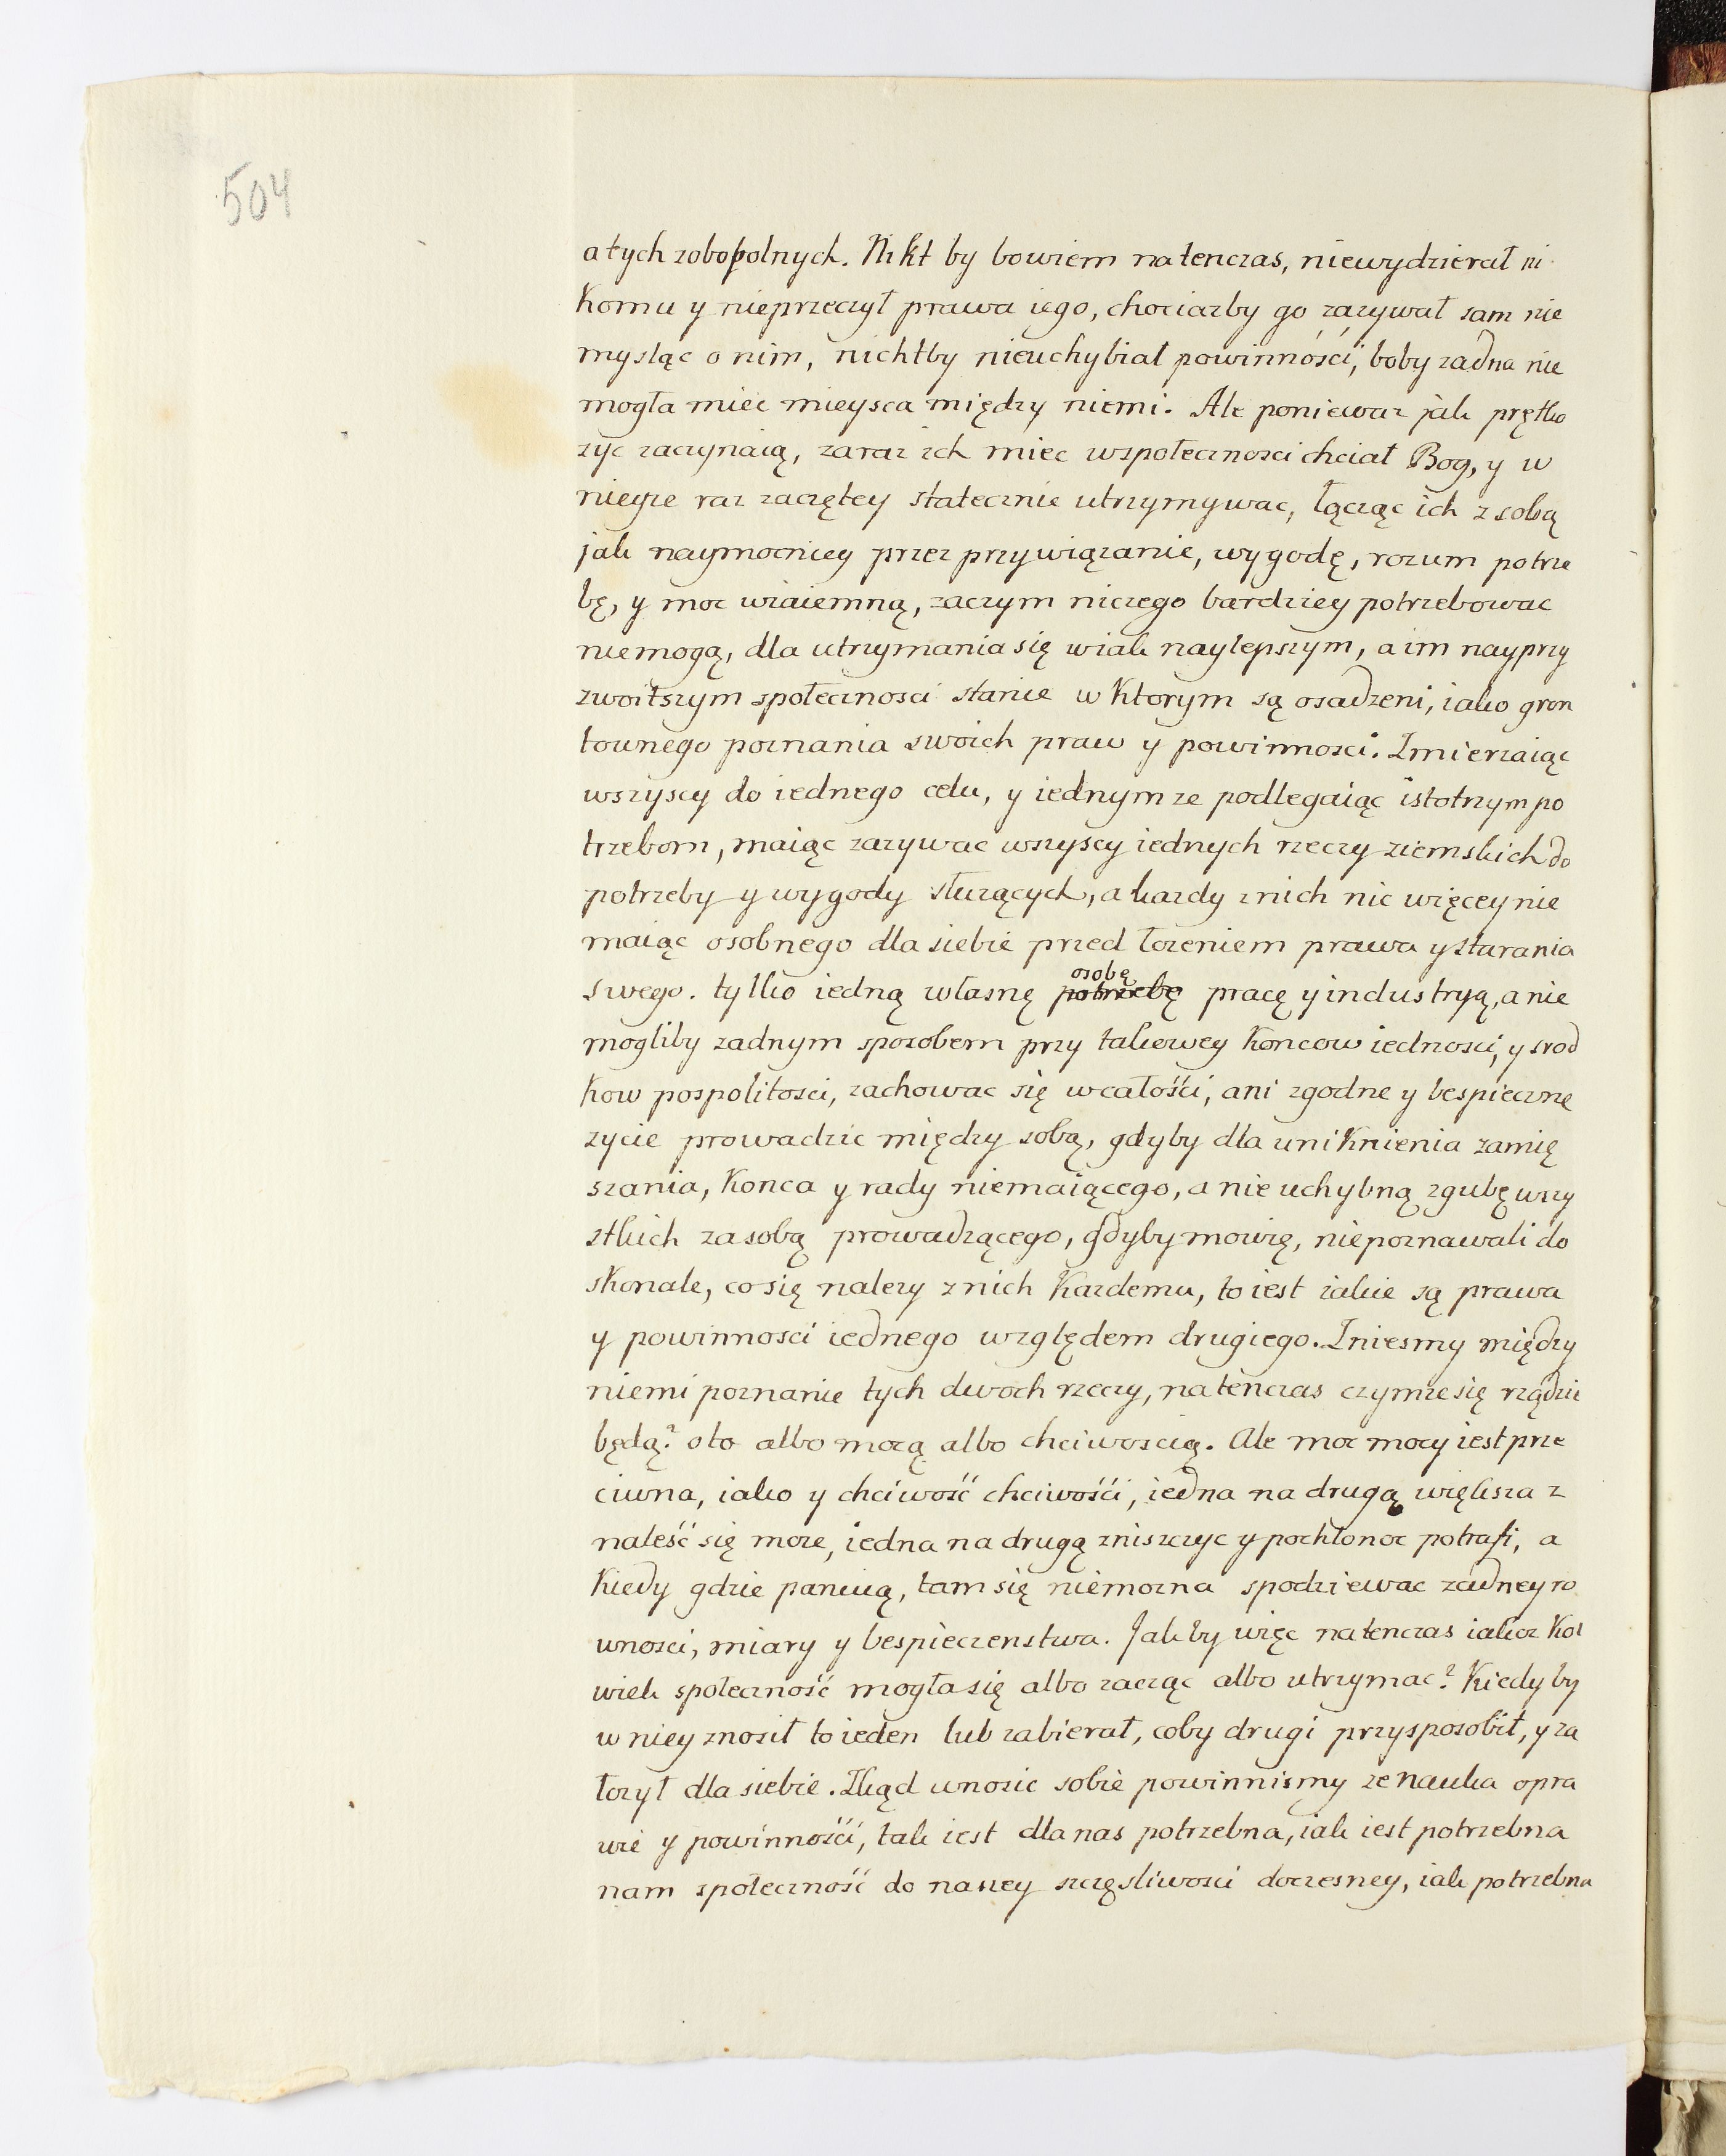 504
a tych zobopolnych. Nikt by bowiem natenczas, niewydzierał ni
komu y nieprzeczył prawa iego, chociazby go zazywał sam nie
mysląc o nim, nichtby nieuchybiał powinności, boby zadna nie
mogła miec mieysca między niemi. Ale poniewaz jak prętko
zyc zaczynaią, zaraz ich miec wspołecznosci chciał Bog, y w
nieyze raz zaczętey statecznie utrzymywac, łącząc ich z sobą
jak naymocniey przez przywiązanie, wygodę, rozum potrze
bę, y moc wzaiemną, zaczym niczego bardziey potrzebowac
niemogą, dla utrzymania się w iak naylepszym, a im nayprzy
zwoitszym społecznosci stanie w ktorym są osadzeni, iako gron
townego poznania swoich praw y powinnosci. Zmierzaiąc
wszyscy do iednego celu, y iednym ze podlegaiąc istotnym po
trzebom, maiąc zazywac wszyscy iednych rzeczy ziemskich do
potrzeby y wygody słuzących, a kazdy z nich nic więcey nie
maiąc osobnego dla siebie przed łozeniem prawa y starania
swego. tylko iedną własnę potrzebę osobę pracę y industryą, a nie
mogliby zadnym sposobem przy takowey koncow iednosci, y srod
kow pospolitosci, zachowac się w całości, ani zgodne y bespieczne
zycie prowadzic między sobą, gdyby dla uniknienia zamię
szania, konca y rady niemaiącego, a nie uchybną zgubę wszy
stkich za sobą prowadzącego, gdyby mowię, niepoznawali do
skonale, co się nalezy z nich kazdemu, to iest iakie są prawa
y powinnosci iednego względem drugiego. Zniesmy między
niemi poznanie tych dwoch rzeczy, natenczas czymze się rządzic
będą? oto albo mocą albo chciwoscią. Ale moc mocy iest prze
ciwna, iako y chciwość chciwości, iedna na drugą większa z
naleść się moze, iedna na drugą zniszczyc y pochłonoc potrafi, a
kiedy gdzie panuią, tam się niemozna spodziewac zadney ro
wnosci, miary y bespieczenstwa. Jakby więc natenczas iakoz kol
wiek społeczność mogła się albo zacząc albo utrzymac? kiedy by
w niey znosił to ieden lub zabierał, coby drugi przysposobił, y za
łozył dla siebie. Zkąd wnosic sobie powinnismy ze nauka o pra
wie y powinności, tak iest dla nas potrzebna, iak iest potrzebna
nam społeczność do naszey szczęsliwosci doczesney, iak potrzebna